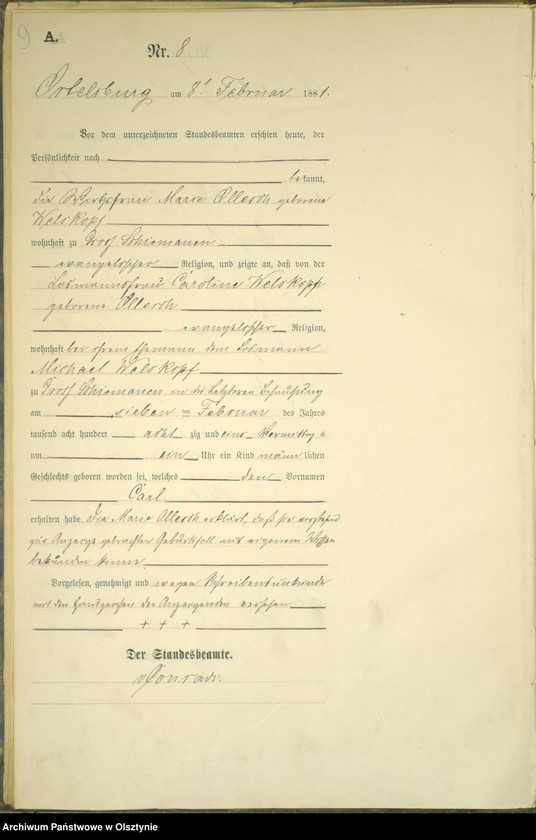 9
A.
Nr. 8
Ortelsburg am 8t Februar 1881.
Vor dem unterzeichneten Standesbeamten erschien heute, der
Persönlichkeit nach
bekannt,
die Wirthsfrau Marie Olleroh geborene
Welskopf
wohnhaft zu Dorf Schiemanen
evangelischer Religion, und zeigte an, daß von der
Losmannsfrau Caroline Welskopf
geborene Olleroh
evangelischer Religion,
wohnhaft bei ihrem Ehemann dem Losmann
Michael Welskopf
zu Dorf Schiemanen in des Letzteren Behausung
am sieben ten Februar des Jahres
tausend acht hundert acht zig und eins Vormittags
um ein Uhr ein Kind männlichen
Geschlechts geboren worden sei, welches den Vornamen
Carl
erhalten habe Die Marie Olleroh erklärt, daß sie vorstehend
zur Anzeige gebrachten Geburtsfall aus eigenem Wissen
bekunden könne
Vorgelesen, genehmigt und wegen Schreibensunkunde
mit den Handzeichen der Anzeigenden versehen
+ + +
Der Standesbeamte.
Conrad.
Archiwum Państwowe w Olsztynie